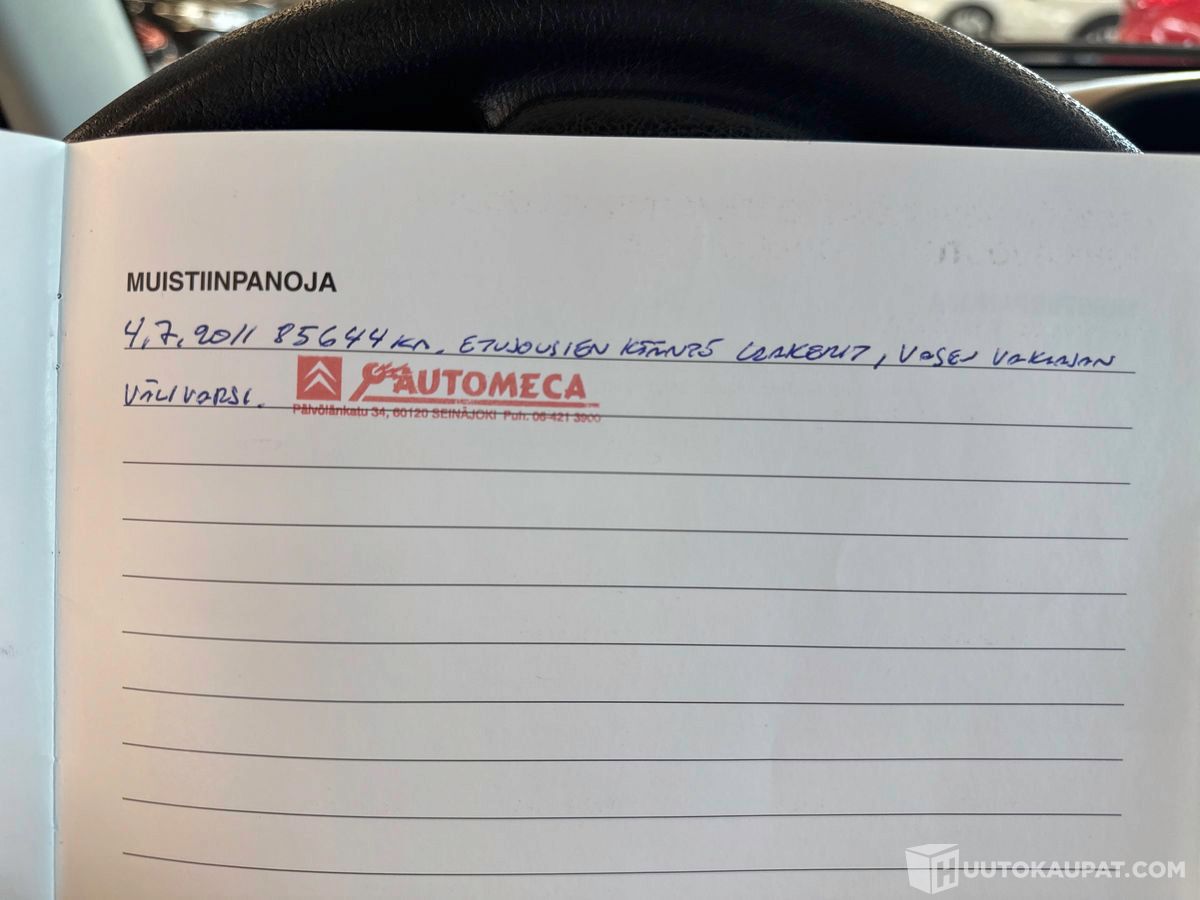 MUISTIINPANOJA
4.7.2011 85644 km. ETUJOUSIEN KÄÄNTÖ LAAKERIT, VASEN VAKAAJAN
VÄLIVARSI.
AUTOMECA
Päivölänkatu 34, 60120 SEINÄJOKI Puh. 06-421 3900
HUUTOKAUPAT.COM